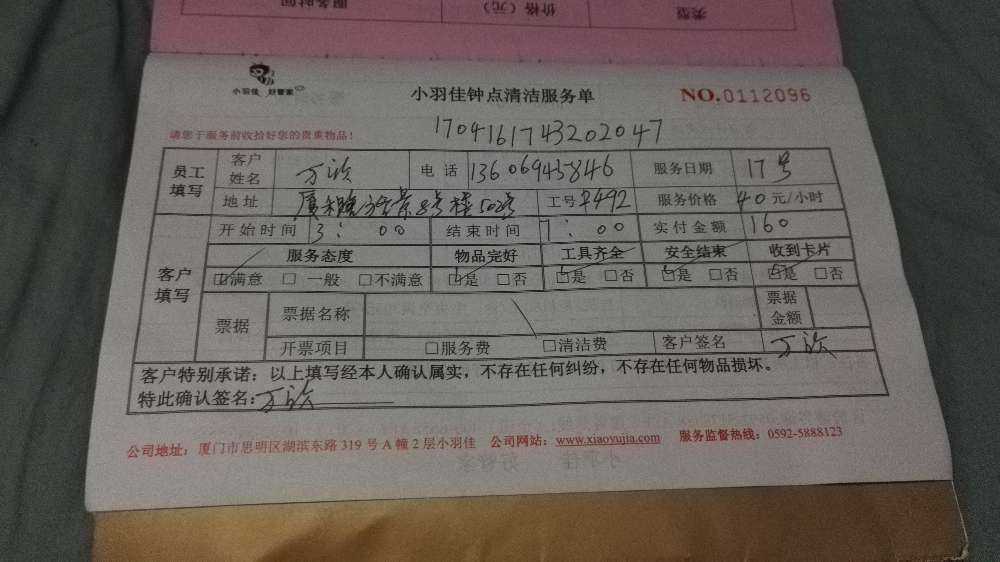 服务时间 价格（元） 类型
小羽佳 好管家
小羽佳钟点清洁服务单
NO.0112096
请您于服务前收拾好您的贵重物品！
1704161743202047
员工填写 客户姓名 电话 13606945846 服务日期 17号
地址 工号 服务价格 40元/小时
开始时间 3：00 结束时间 7：00 实付金额 160
客户填写 服务态度 物品完好 工具齐全 安全结束 收到卡片
☑满意 □一般 □不满意 ☑是 □否 ☑是 □否 ☑是 □否 ☑是 □否
票据 票据名称 票据金额
开票项目 □服务费 □清洁费 客户签名
客户特别承诺：以上填写经本人确认属实，不存在任何纠纷，不存在任何物品损坏。
特此确认签名：
公司地址：厦门市思明区湖滨东路319号A幢2层小羽佳 公司网站：www.xiaoyujia.com 服务监督热线：0592-5888123